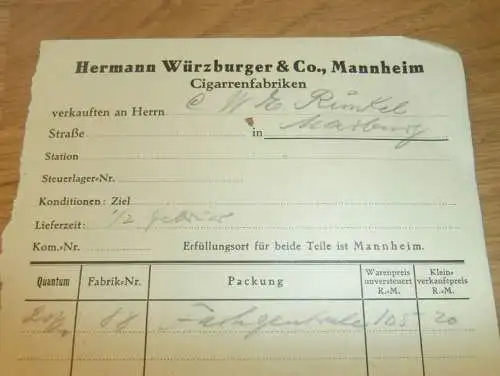 Hermann Würzburger & Co., Mannheim
Cigarrenfabriken
verkauften an Herrn C W E Rünkel
Straße in Marburg
Station
Steuerlager-Nr.
Konditionen: Ziel
Lieferzeit: 1/2
Kom.-Nr. Erfüllungsort für beide Teile ist Mannheim.
Quantum Fabrik-Nr. Packung Warenpreis unversteuert R.-M. Kleinverkaufspreis R.-M.
105 20